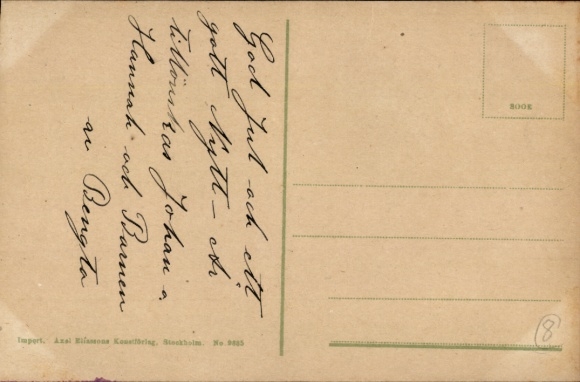 God Jul och ett
gott Nytt-År
tillönskas Johan o.
Hannah och Barnen
av Bengta
Import. Axel Eliassons Konstförlag, Stockholm. No 9865
8